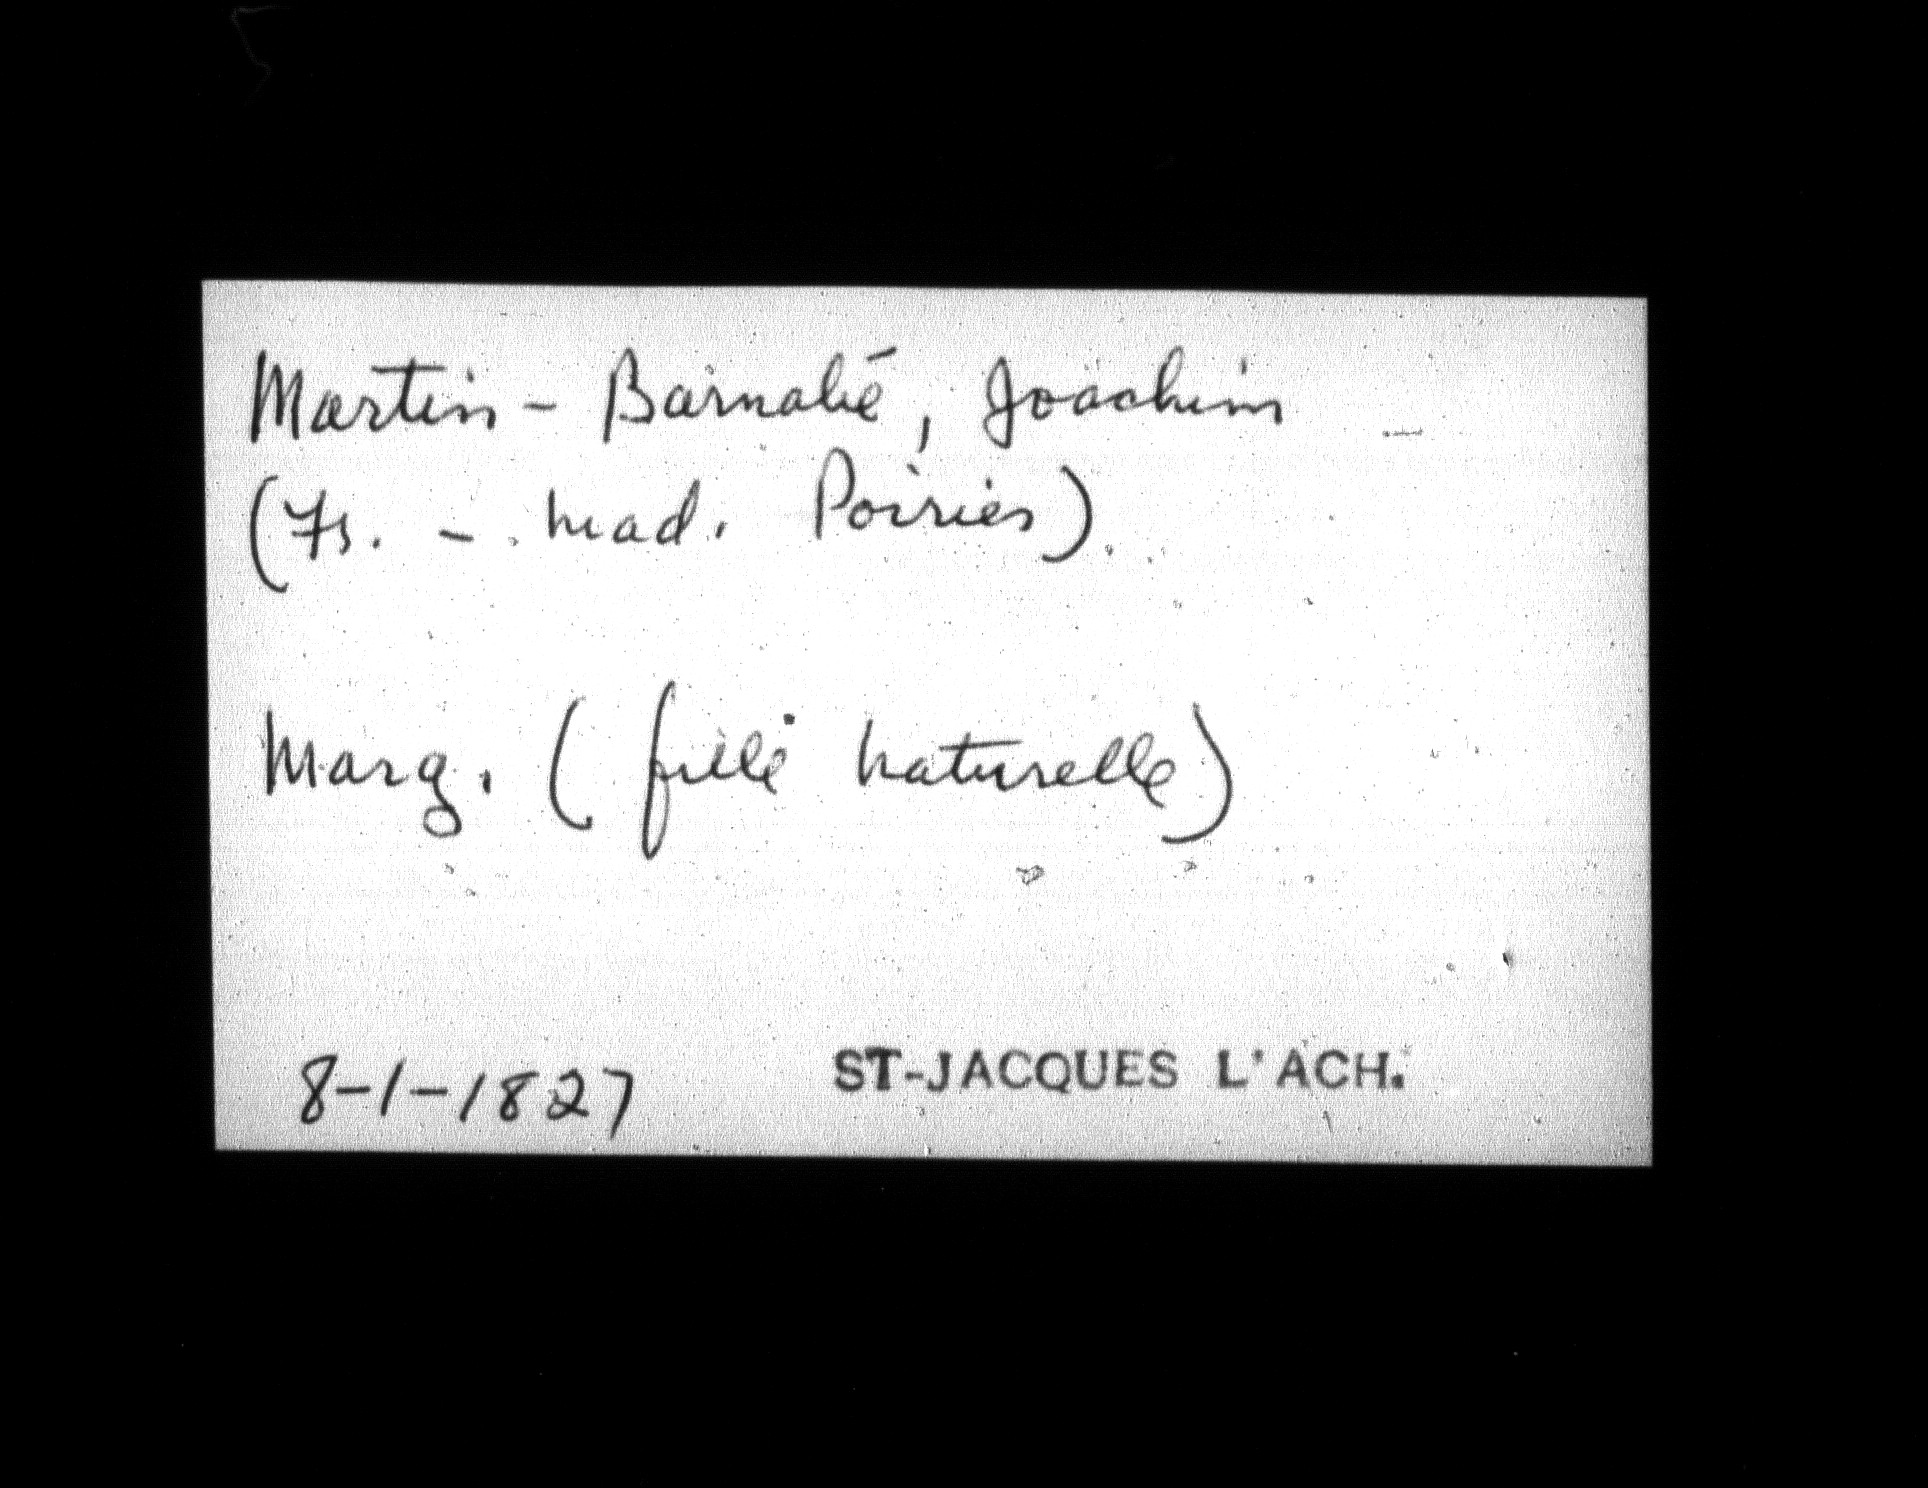 Martin - Barnabé, Joachim
(Fs. - Mad. Poirier)
Marg. (fille naturelle)
8-1-1827 ST-JACQUES L'ACH.